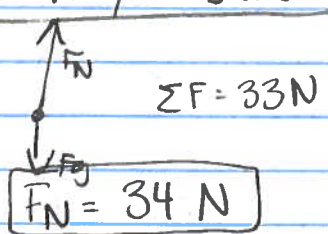 F_N
ΣF = 33 N
Fg
F_N = 34 N